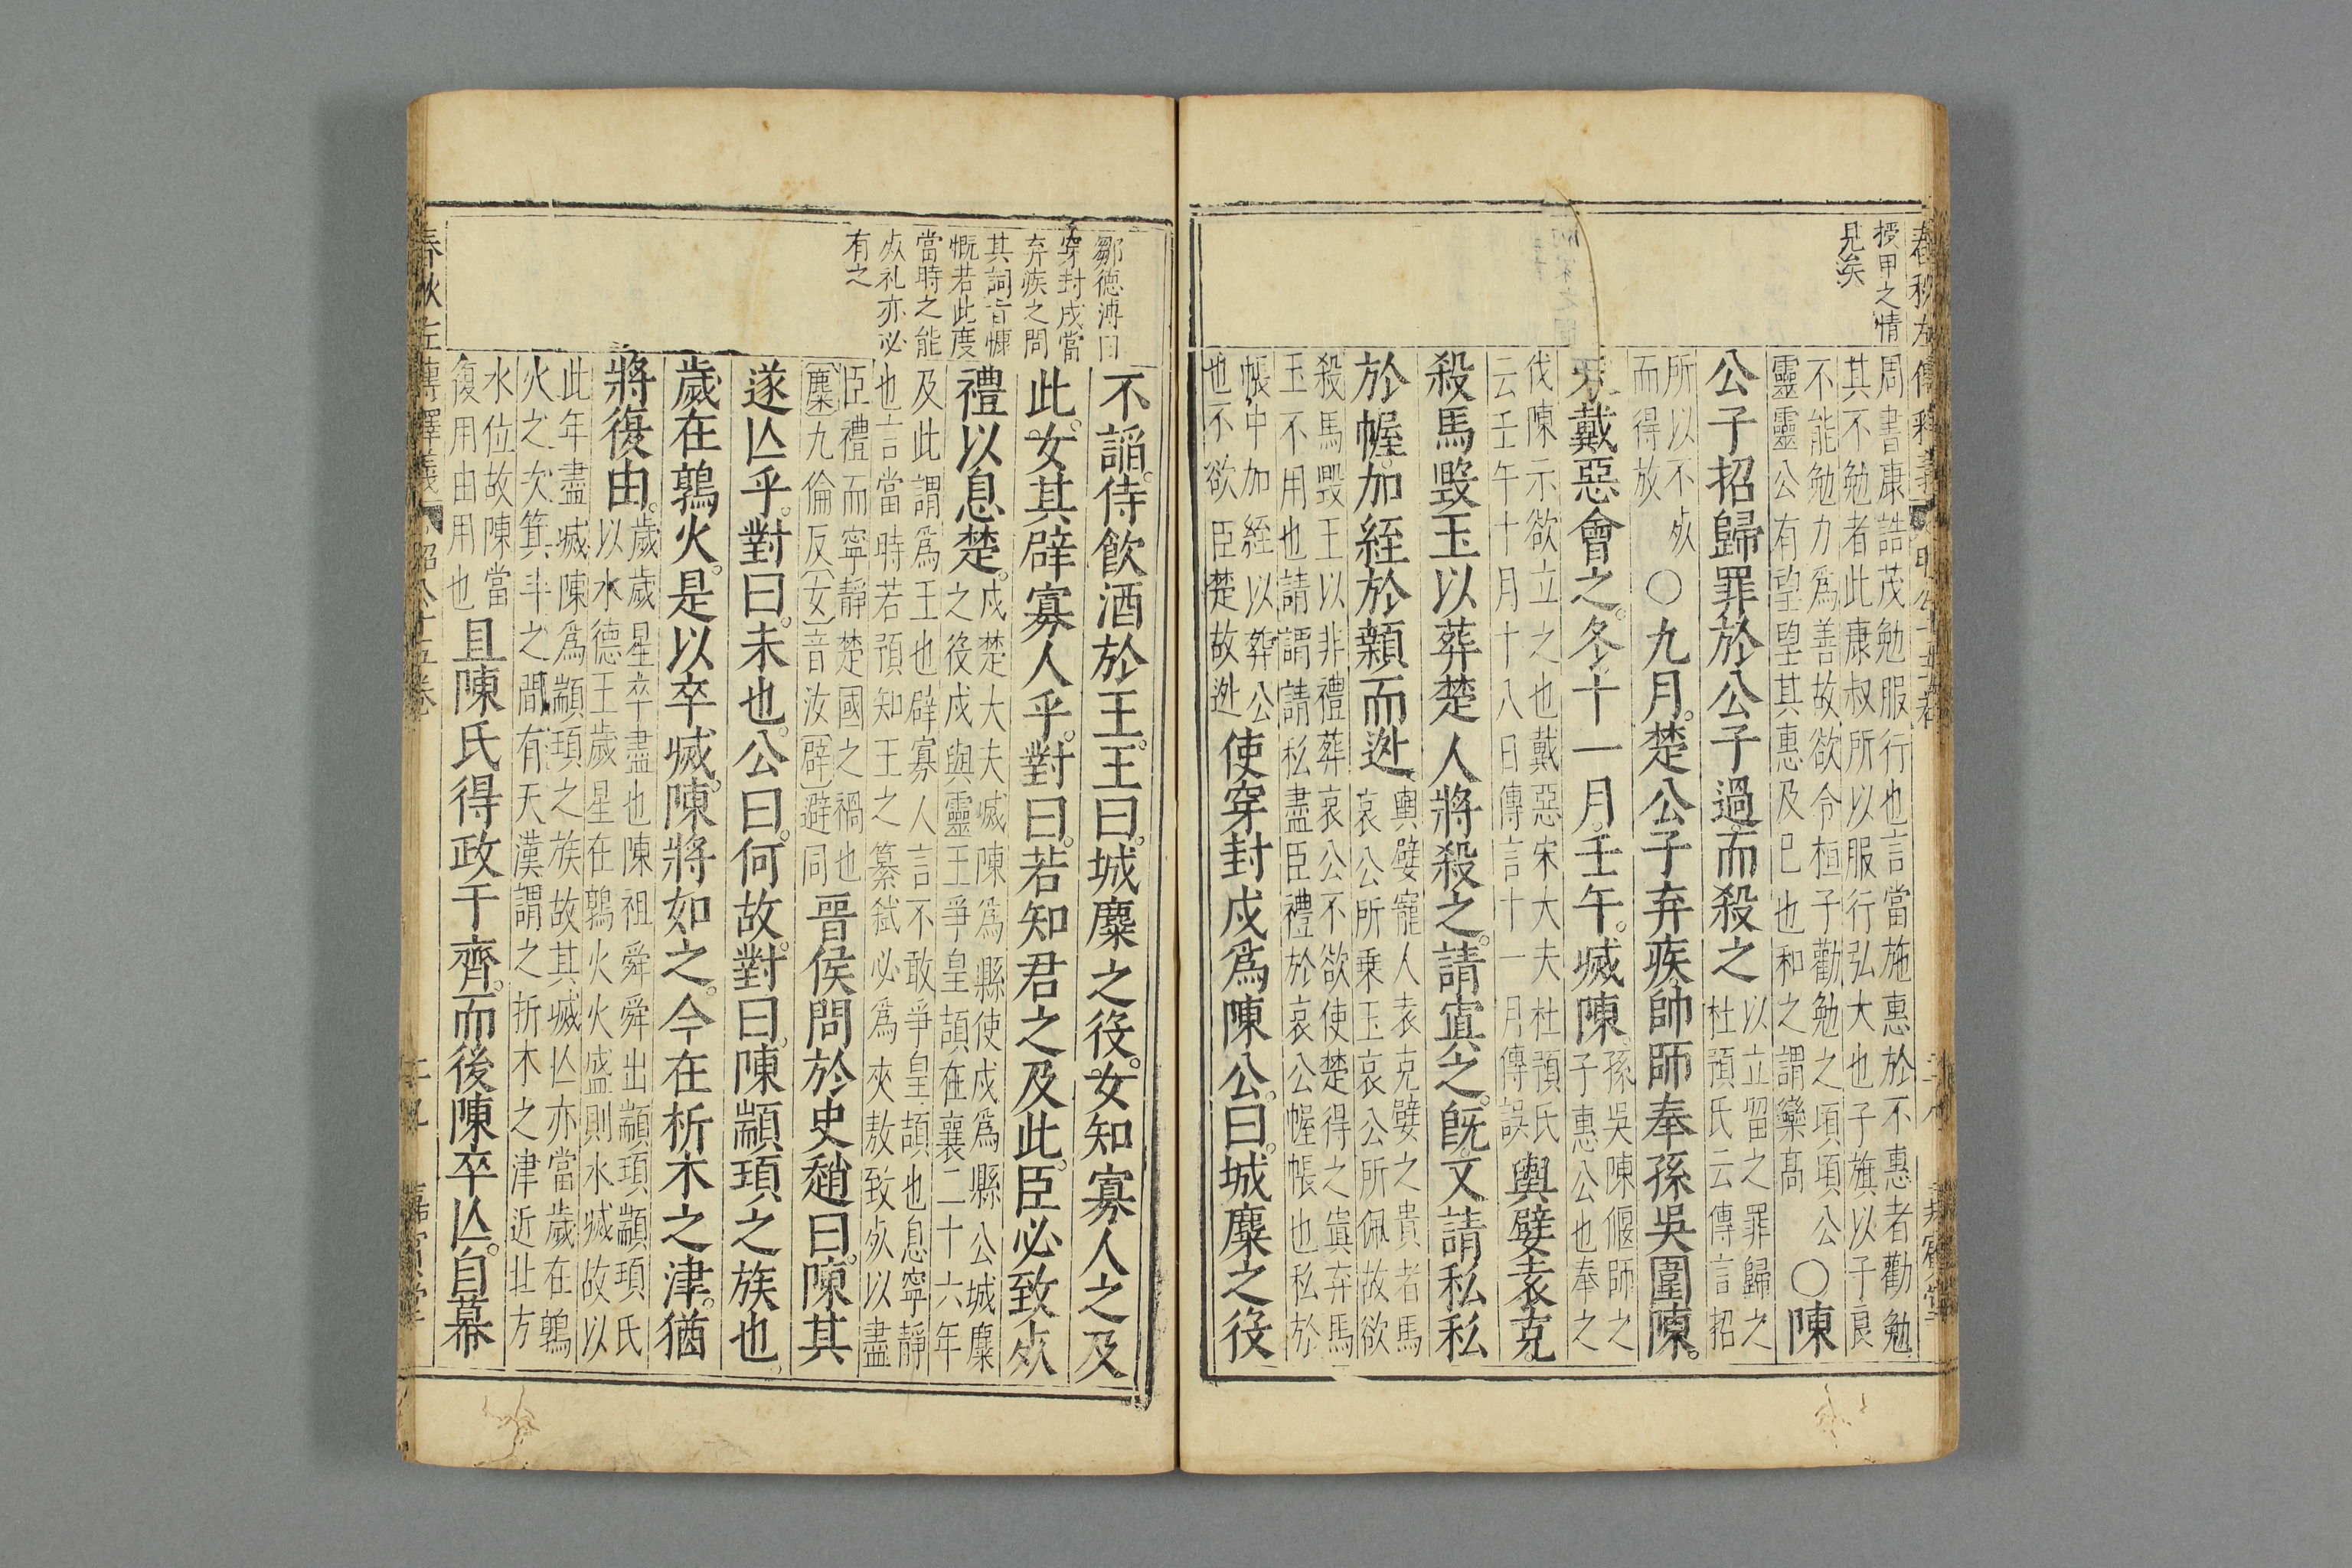 授甲之情
見矣
周書康誥茂勉服行也言當施惠於不惠者勸勉
其不勉者此康叔所以服行弘大也子旗以子良
不能勉力爲善故欲令桓子勸勉之項項公
靈靈公有朢朢其惠及已也和之謂欒高
〇陳
公子招歸罪於公子過而殺之
以立留之罪歸之
杜預氏云傳言招
所以不𣦸
而得放
〇九月。楚公子弃疾帥師奉孫吳圍陳。
孫吳陳偃師之
子惠公也奉之
伐陳示欲立之也戴惡宋大夫杜預氏
云壬午十月十八日傳言十一月傳誤
宋戴惡會之。冬。十一月。壬午。滅陳。
輿嬖袁克。
殺馬毀玉以葬楚人將殺之。請寘之。旣又請私私
於幄。加絰於顙而迯
輿嬖寵人袁克嬖之貴者馬
哀公所乗玉哀公所佩故欲
殺馬毀玉以非禮葬哀公不欲使楚得之寘弃馬
玉不用也請謂請私盡臣禮於哀公幄帳也私於
帳中加絰以葬公
也不欲臣楚故迯
使穿封戌爲陳公。曰。城麇之役
鄒德溥曰
穿封戌當
弃疾之問
其詞旨慷
慨若此度
當時之能
𣦸礼亦必
有之
不謟。侍飲酒於王。王曰。城麇之役。女知寡人之及
此。女其辟寡人乎。對曰。若知君之及此。臣必致𣦸
禮以息楚。
戌楚大夫滅陳爲縣使戌爲縣公城麇
之後戌與靈王爭皇頡在襄二十六年
及此謂爲王也辟寡人言不敢爭皇頡也息寧靜
也言當時若預知王之簒弒必爲夾敖致𣦸以盡
臣禮而寧靜楚國之禍也
〔麇〕九倫反〔女〕音汝〔辟〕避同
晉侯問於史趙曰。陳其
遂亾乎。對曰。未也。公曰。何故。對曰。陳顓頊之族也
歲在鶉火。是以卒滅。陳將如之。今在析木之津。猶
將復由。
歲歲星卒盡也陳祖舜舜出顓頊顓頊氏
以水德王歲星在鶉火火盛則水滅故以
此年盡滅陳爲顓頊之族故其滅亾亦當歲在鶉
火之次箕斗之間有天漢謂之折木之津近北方
水位故陳當
復用由用也
且陳氏得政于齊。而後陳卒亾。自幕